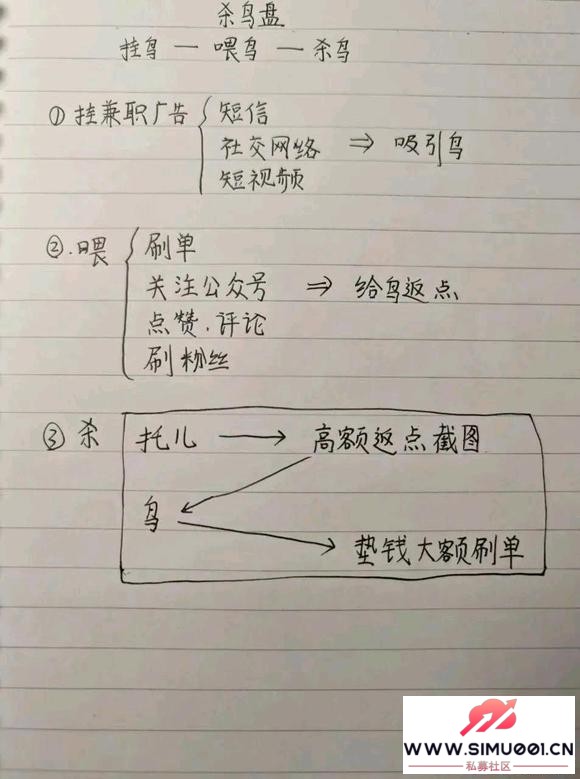 杀鸟盘
挂鸟 — 喂鸟 — 杀鸟
① 挂兼职广告 { 短信
社交网络 ⇒ 吸引鸟
短视频
②.喂 { 刷单
关注公众号 ⇒ 给鸟返点
点赞.评论
刷粉丝
③ 杀 托儿 → 高额返点截图
鸟
垫钱大额刷单
WWW.SIMU001.CN
私募社区